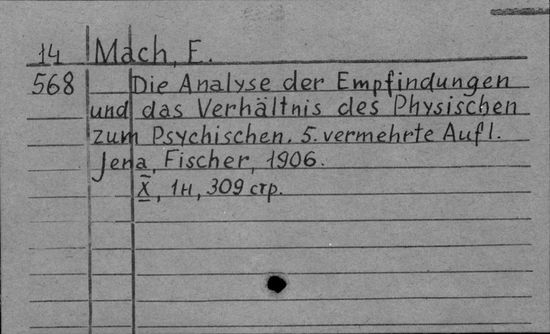 14 Mach, E.
568 Die Analyse der Empfindungen
und das Verhältnis des Physischen
zum Psychischen. 5. vermehrte Aufl.
Jena, Fischer, 1906.
X, 1н, 309 стр.